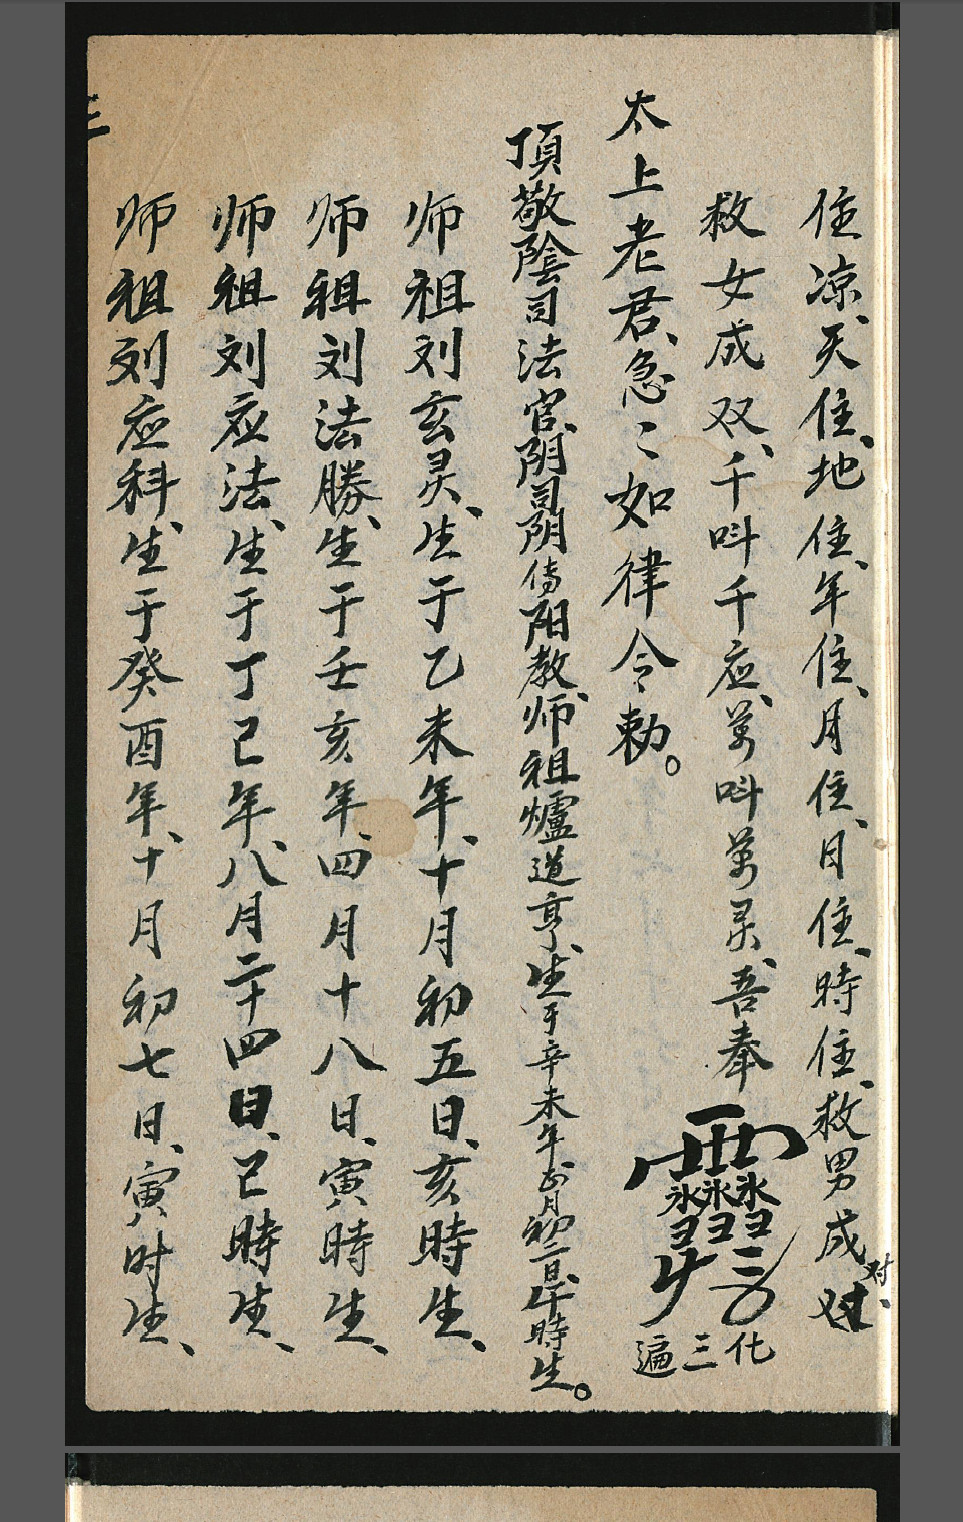 住凉、天住、地住、年住、月住、日住、時住、救男成对、
对
救女成双、千叫千应、萬叫萬灵、吾奉
化三遍
太上老君、急〻如律令勅。
頂敬陰司法官、阴司阴傳阳教、师祖爐道亨、生于辛未年正月初二日、午時生。
师祖刘玄灵、生于乙未年、十月初五日、亥時生、
师祖刘法勝、生于壬亥年、四月十八日、寅時生、
师祖刘应法、生于丁己年、八月二十四日、己時生、
师祖刘应科、生于癸酉年、十月初七日、寅时生、
三